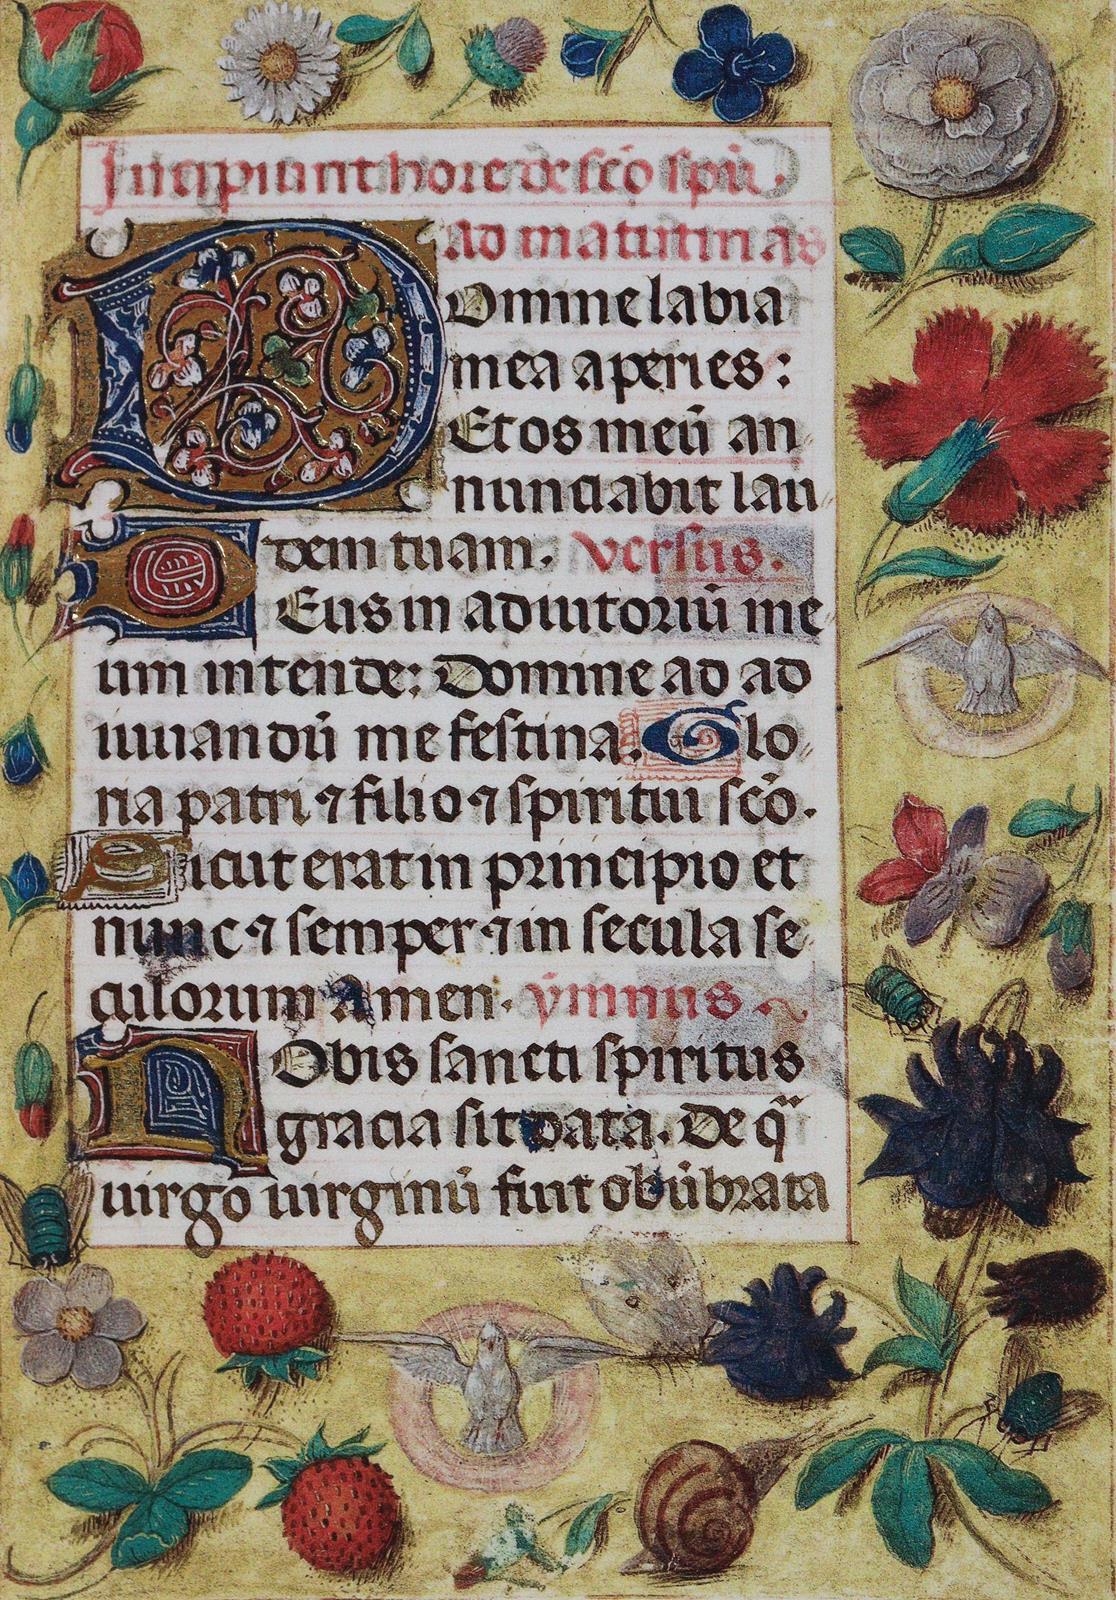 Incipiunt hore de sc̄o spū.
ad matutinas
Domine labia
mea aperies:
Et os meū an
nunciabit lau
dem tuam. versus.
Deus in adiutoriū me
um intende: Domine ad ad
iuuandū me festina. Glo
ria patri ⁊ filio ⁊ spiritui sc̄o.
Sicut erat in principio et
nunc ⁊ semper ⁊ in secula se
culorum Amen. ymnus
Nobis sancti spiritus
gracia sit data. De q̈
uirgo uirginū fuit obūbrata